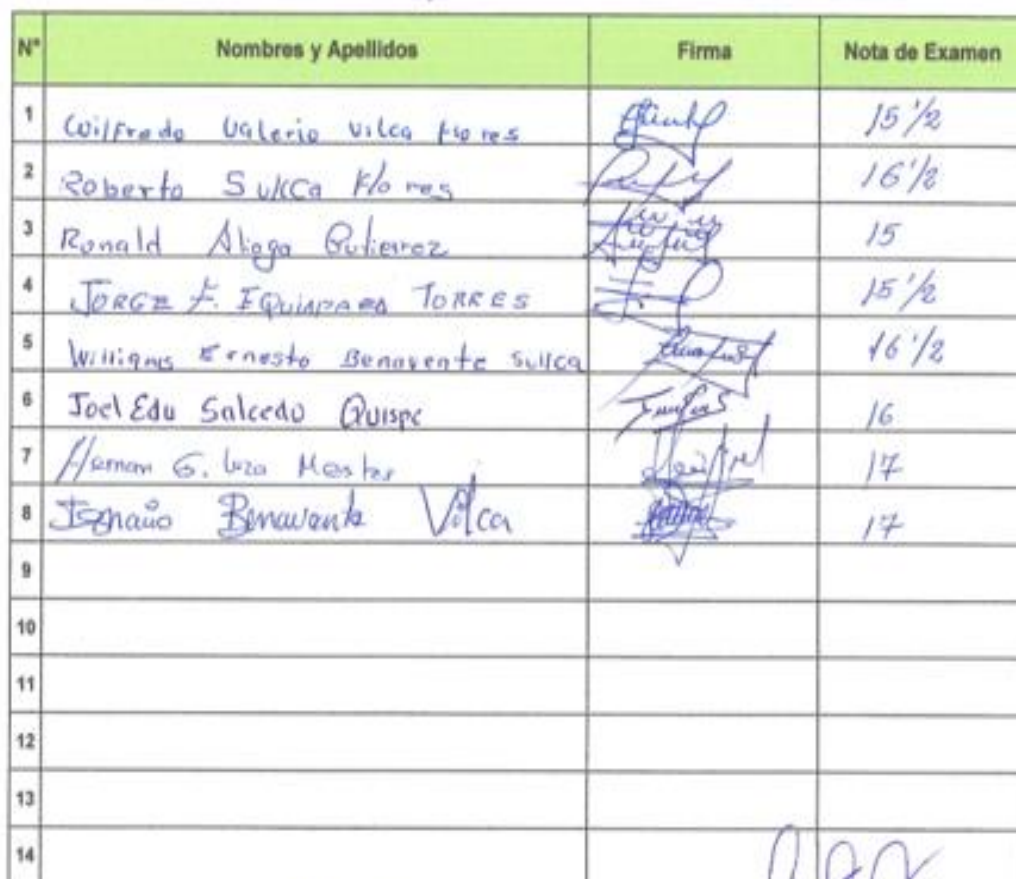 N° Nombres y Apellidos Firma Nota de Examen
1 Wilfredo Valerio Vilca Flores 15 1/2
2 Roberto Sullca Flores 16 1/2
3 Ronald Aliaga Gutierrez 15
4 JORGE F. TORRES 15 1/2
5 Williams Ernesto Benavente Sullca 16 1/2
6 Joel Edu Salcedo Quispe 16
7 Hernan G. 17
8 Benavente Vilca 17
9
10
11
12
13
14